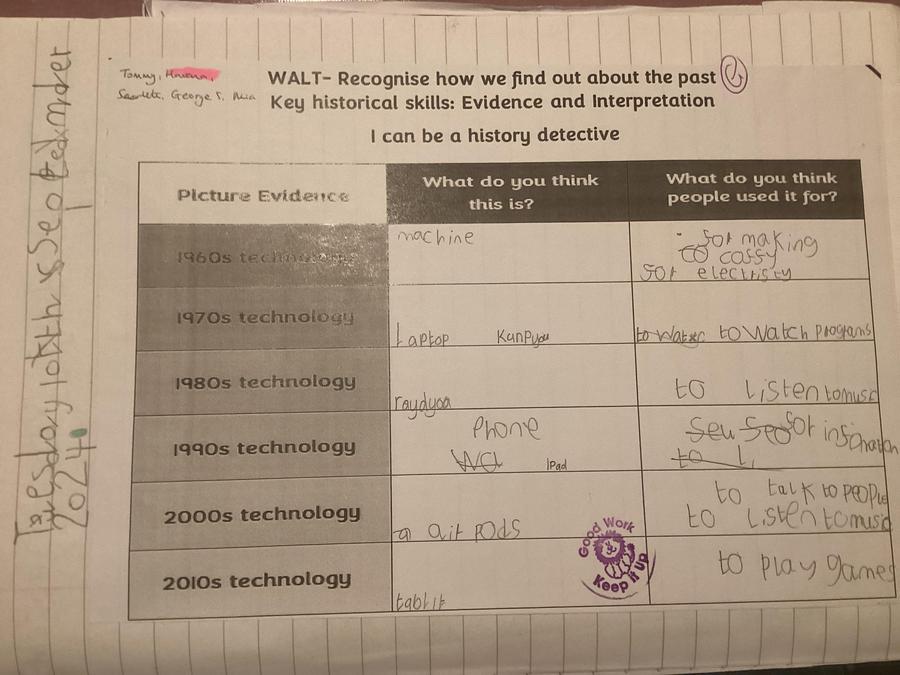 Tuesday 10th Seotedmder
2024.
Tommy,
Scarlett, George S, Mia
WALT- Recognise how we find out about the past
Key historical skills: Evidence and Interpretation
I can be a history detective
Picture Evidence
What do you think
this is?
What do you think
people used it for?
1960s technology
machine
for making
to coffy
for electristy
1970s technology
Laptop Kunpyou
to Water to Watch programs
1980s technology
raydyoa
to Listen to music
1990s technology
Phone
wa iPad
Seu Seo for infomation
to Li
2000s technology
a air Pods
to talk to people
to Listen to music
Good Work
Keep it up
2010s technology
tablit
to play games